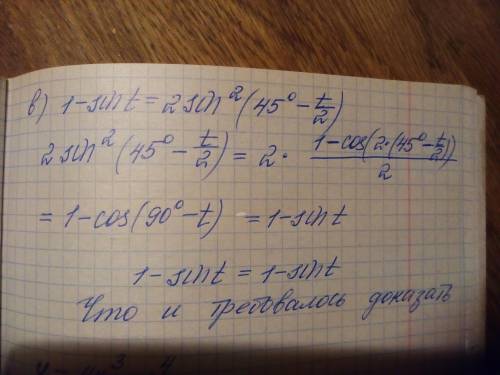 в) 1-sint = 2sin²(45°-t/2)
2sin²(45°-t/2) = 2· 1-cos(2·(45°-t/2))/2
= 1-cos(90°-t) = 1-sint
1-sint = 1-sint
Что и требовалось доказать